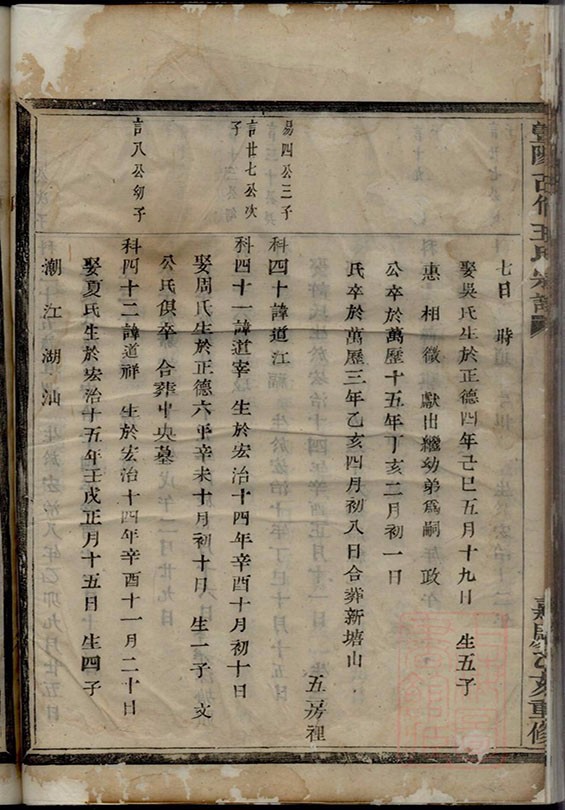 暨陽古竹王氏宗譜
嘉慶乙亥重修
七日　時
娶吳氏生於正德四年己巳五月十九日　生五子
惠　相　徵　獻出繼幼弟爲嗣　政
公卒於萬歷十五年丁亥二月初一日
氏卒於萬歷三年乙亥四月初八日合葬新塘山
五房裡
易四公三子
科四十諱道江
言廿七公次子
科四十一諱道宰　生於宏治十四年辛酉十月初十日
娶周氏生於正德六年辛未十月初十日　生一子　文
公氏俱卒　合葬中央墓
言八公幼子
科四十二諱道祥　生於宏治十四年辛酉十一月二十日
娶夏氏生於宏治十五年壬戌正月十五日　生四子
潮　江　湖　汕